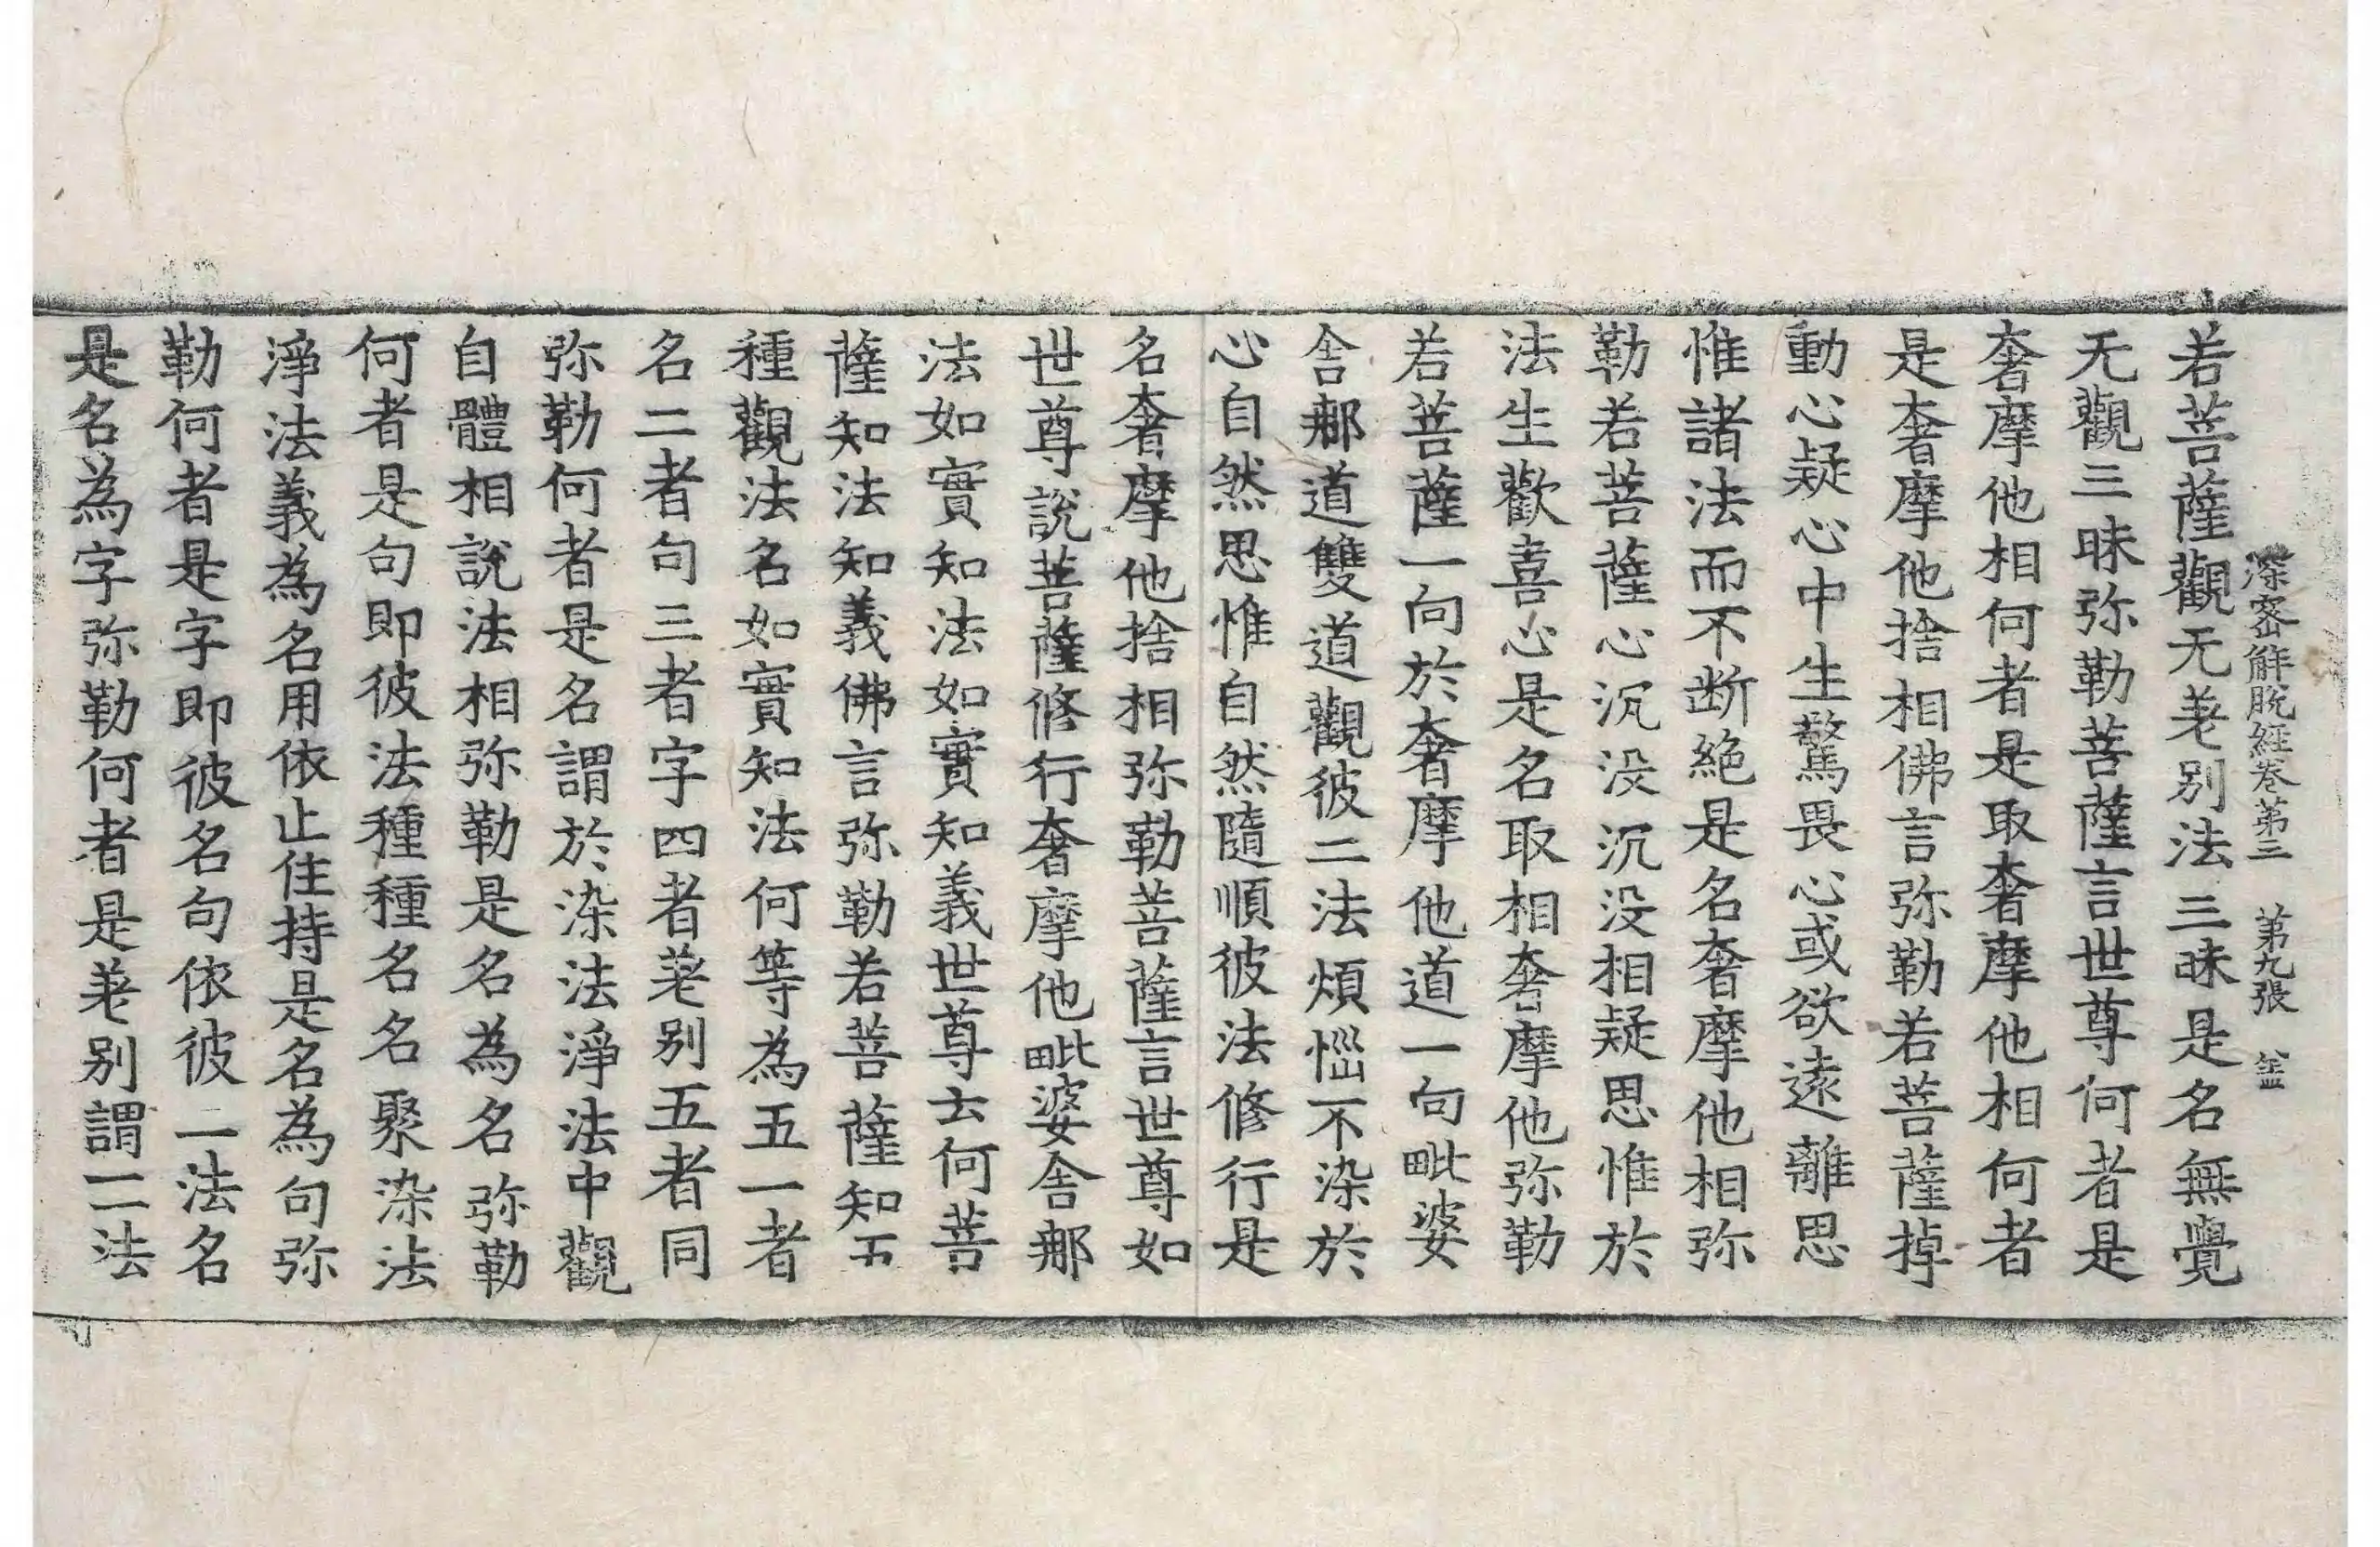 深密解脫經卷第三　第九張　蓋
若菩薩觀无差别法三昧是名無覺
无觀三昧弥勒菩薩言世尊何者是
奢摩他相何者是取奢摩他相何者
是奢摩他捨相佛言弥勒若菩薩掉
動心疑心中生驚畏心或欲遠離思
惟諸法而不断絶是名奢摩他相弥
勒若菩薩心沉没沉没相疑思惟於
法生歡喜心是名取相奢摩他弥勒
若菩薩一向於奢摩他道一向毗婆
舍那道雙道觀彼二法煩惱不染於
心自然思惟自然隨順彼法修行是
名奢摩他捨相弥勒菩薩言世尊如
世尊說菩薩修行奢摩他毗婆舍那
法如實知法如實知義世尊云何菩
薩知法知義佛言弥勒若菩薩知五
種觀法名如實知法何等為五一者
名二者句三者字四者差别五者同
弥勒何者是名謂於染法淨法中觀
自體相說法相弥勒是名為名弥勒
何者是句即彼法種種名名聚染法
淨法義為名用依止住持是名為句弥
勒何者是字即彼名句依彼二法名
是名為字弥勒何者是差别謂二法